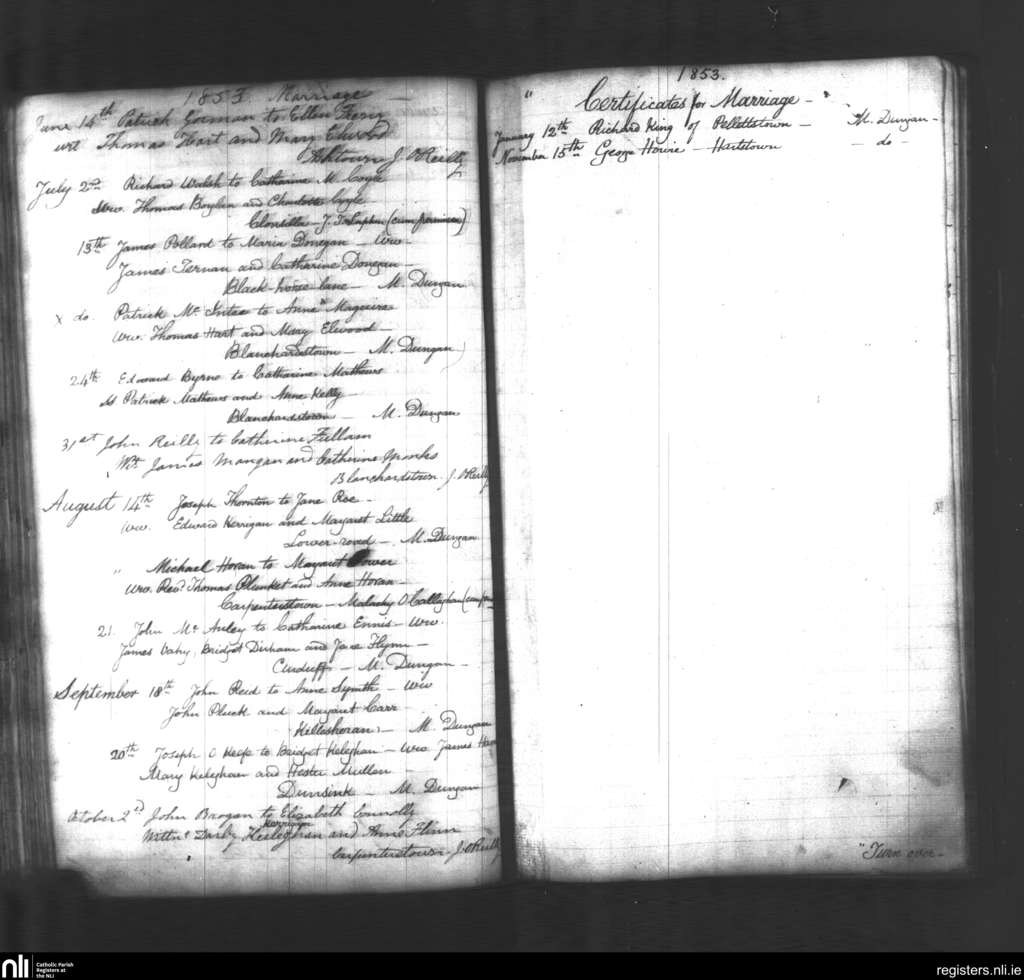 1853. Marriage
June 14th Patrick Gorman to Ellen
wit Thomas Hart and Mary Elwood
Ashtown J. O'Reilly
July 2nd Richard Walsh to Catharine M. Coyle
Wit. Thomas Boylan and Charlotte Coyle
Clonsilla - J. (cum permissu)
13th James Pollard to Maria Donegan - Wit.
James Ternan and Catharine Donegan -
Black-horse lane - M. Dungan
x do. Patrick Mc to Anne Maguire
Wit. Thomas Hart and Mary Elwood -
Blanchardstown - M. Dungan
24th Edward Byrne to Catharine Mathews
Patrick Mathews and Anne Kelly -
Blanchardstown - M. Dungan
31st John Reilly to Catherine Fullam
Wit. James Mangan and Catherine Monks
Blanchardstown J. O'Reilly
August 14th Joseph Thornton to Jane Roe -
Wit. Edward Kerrigan and Margaret Little
Lower-road - M. Dungan
" Michael Horan to Margaret
Wit. Revd. Thomas Plunket and Anne Horan -
Carpenterstown - Malachy O'Callaghan
21. John Mc Auley to Catharine Ennis - Wit.
James Bridget Dirham and Jane Flynn -
M. Dungan -
September 18th John Reid to Anne Smith - Wit
John Pluck and Margaret Carr -
M. Dungan
20th Joseph O Keefe to Bridget Keleghan - Wit. James
Mary Keleghan and Hester Mullen -
Dunsink - M. Dungan
October 2d John Brogan to Elizabeth Connolly
Kerrigan
Darby and Anne Flinn
Carpenterstown J. O'Reilly
1853.
" Certificates for Marriage - "
January 12th Richard King of Pelletstown - M. Dungan -
November 15th George Howie - Hartstown - do -
"Turn over -
nli Catholic Parish Registers at the NLI
registers.nli.ie